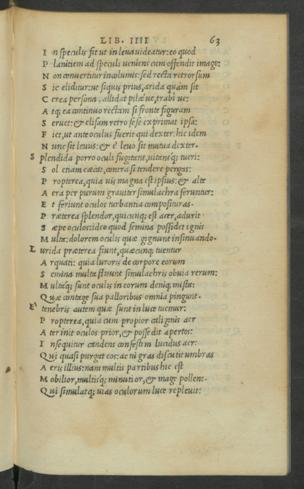 LIB. IIII 63
I n speculis fit ut in leua uideatur: eo quod
P lanitiem ad speculi ueniens cum offendit imago:
N on conuertitur incolumis: sed recta retrorsum
S ic eliditur: ut siquis prius, arida quam sit
C retea persona, allidat pilae ue, trabi ue:
A tq; ea continuo rectam si fronte figuram
S eruet: & elisam retro sese exprimat ipsa:
F iet, ut ante oculus fuerit qui dexter: hic idem
N unc sit leuus: & e leuo sit mutua dexter.
S plendida porro oculi fugitant, uitantq; tueri:
S ol etiam caecat, contra si tendere pergas:
P ropterea, quia uis magna est ipsius: & alte
A era per purum grauiter simulachra feruntur:
E t feriunt oculos turbantia composituras.
P raeterea splendor, quicunq; est acer, adurit
S aepe oculos: ideo quod semina possidet ignis
M ulta: dolorem oculis quae gignunt insinuando.
L urida praeterea fiunt, quaecunq; tuentur
A rquati: quia luroris de corpore eorum
S emina multa fluunt simulachris obuia rerum:
M ultaq; sunt oculis in eorum deniq; mista:
Q uae contage sua palloribus omnia pingunt.
E tenebris autem quae sunt in luce tuemur:
P ropterea, quia cum propior caliginis aer
A ter init oculos prior, & possedit apertos:
I nsequitur candens confestim lucidus aer:
Q ui quasi purgat eos: ac nigras discutit umbras
A eris illius: nam multis partibus hic est
M obilior, multisq; minutior, & mage pollens.
Q ui simulatq; uias oculorum luce repleuit: